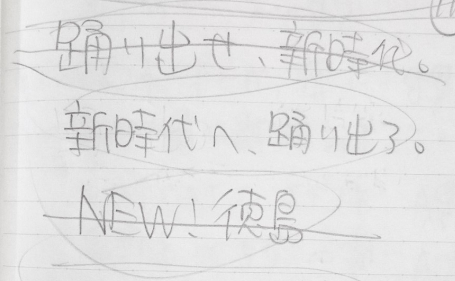 踊り出せ、新時代。
新時代へ、踊り出る。
NEW!徳島